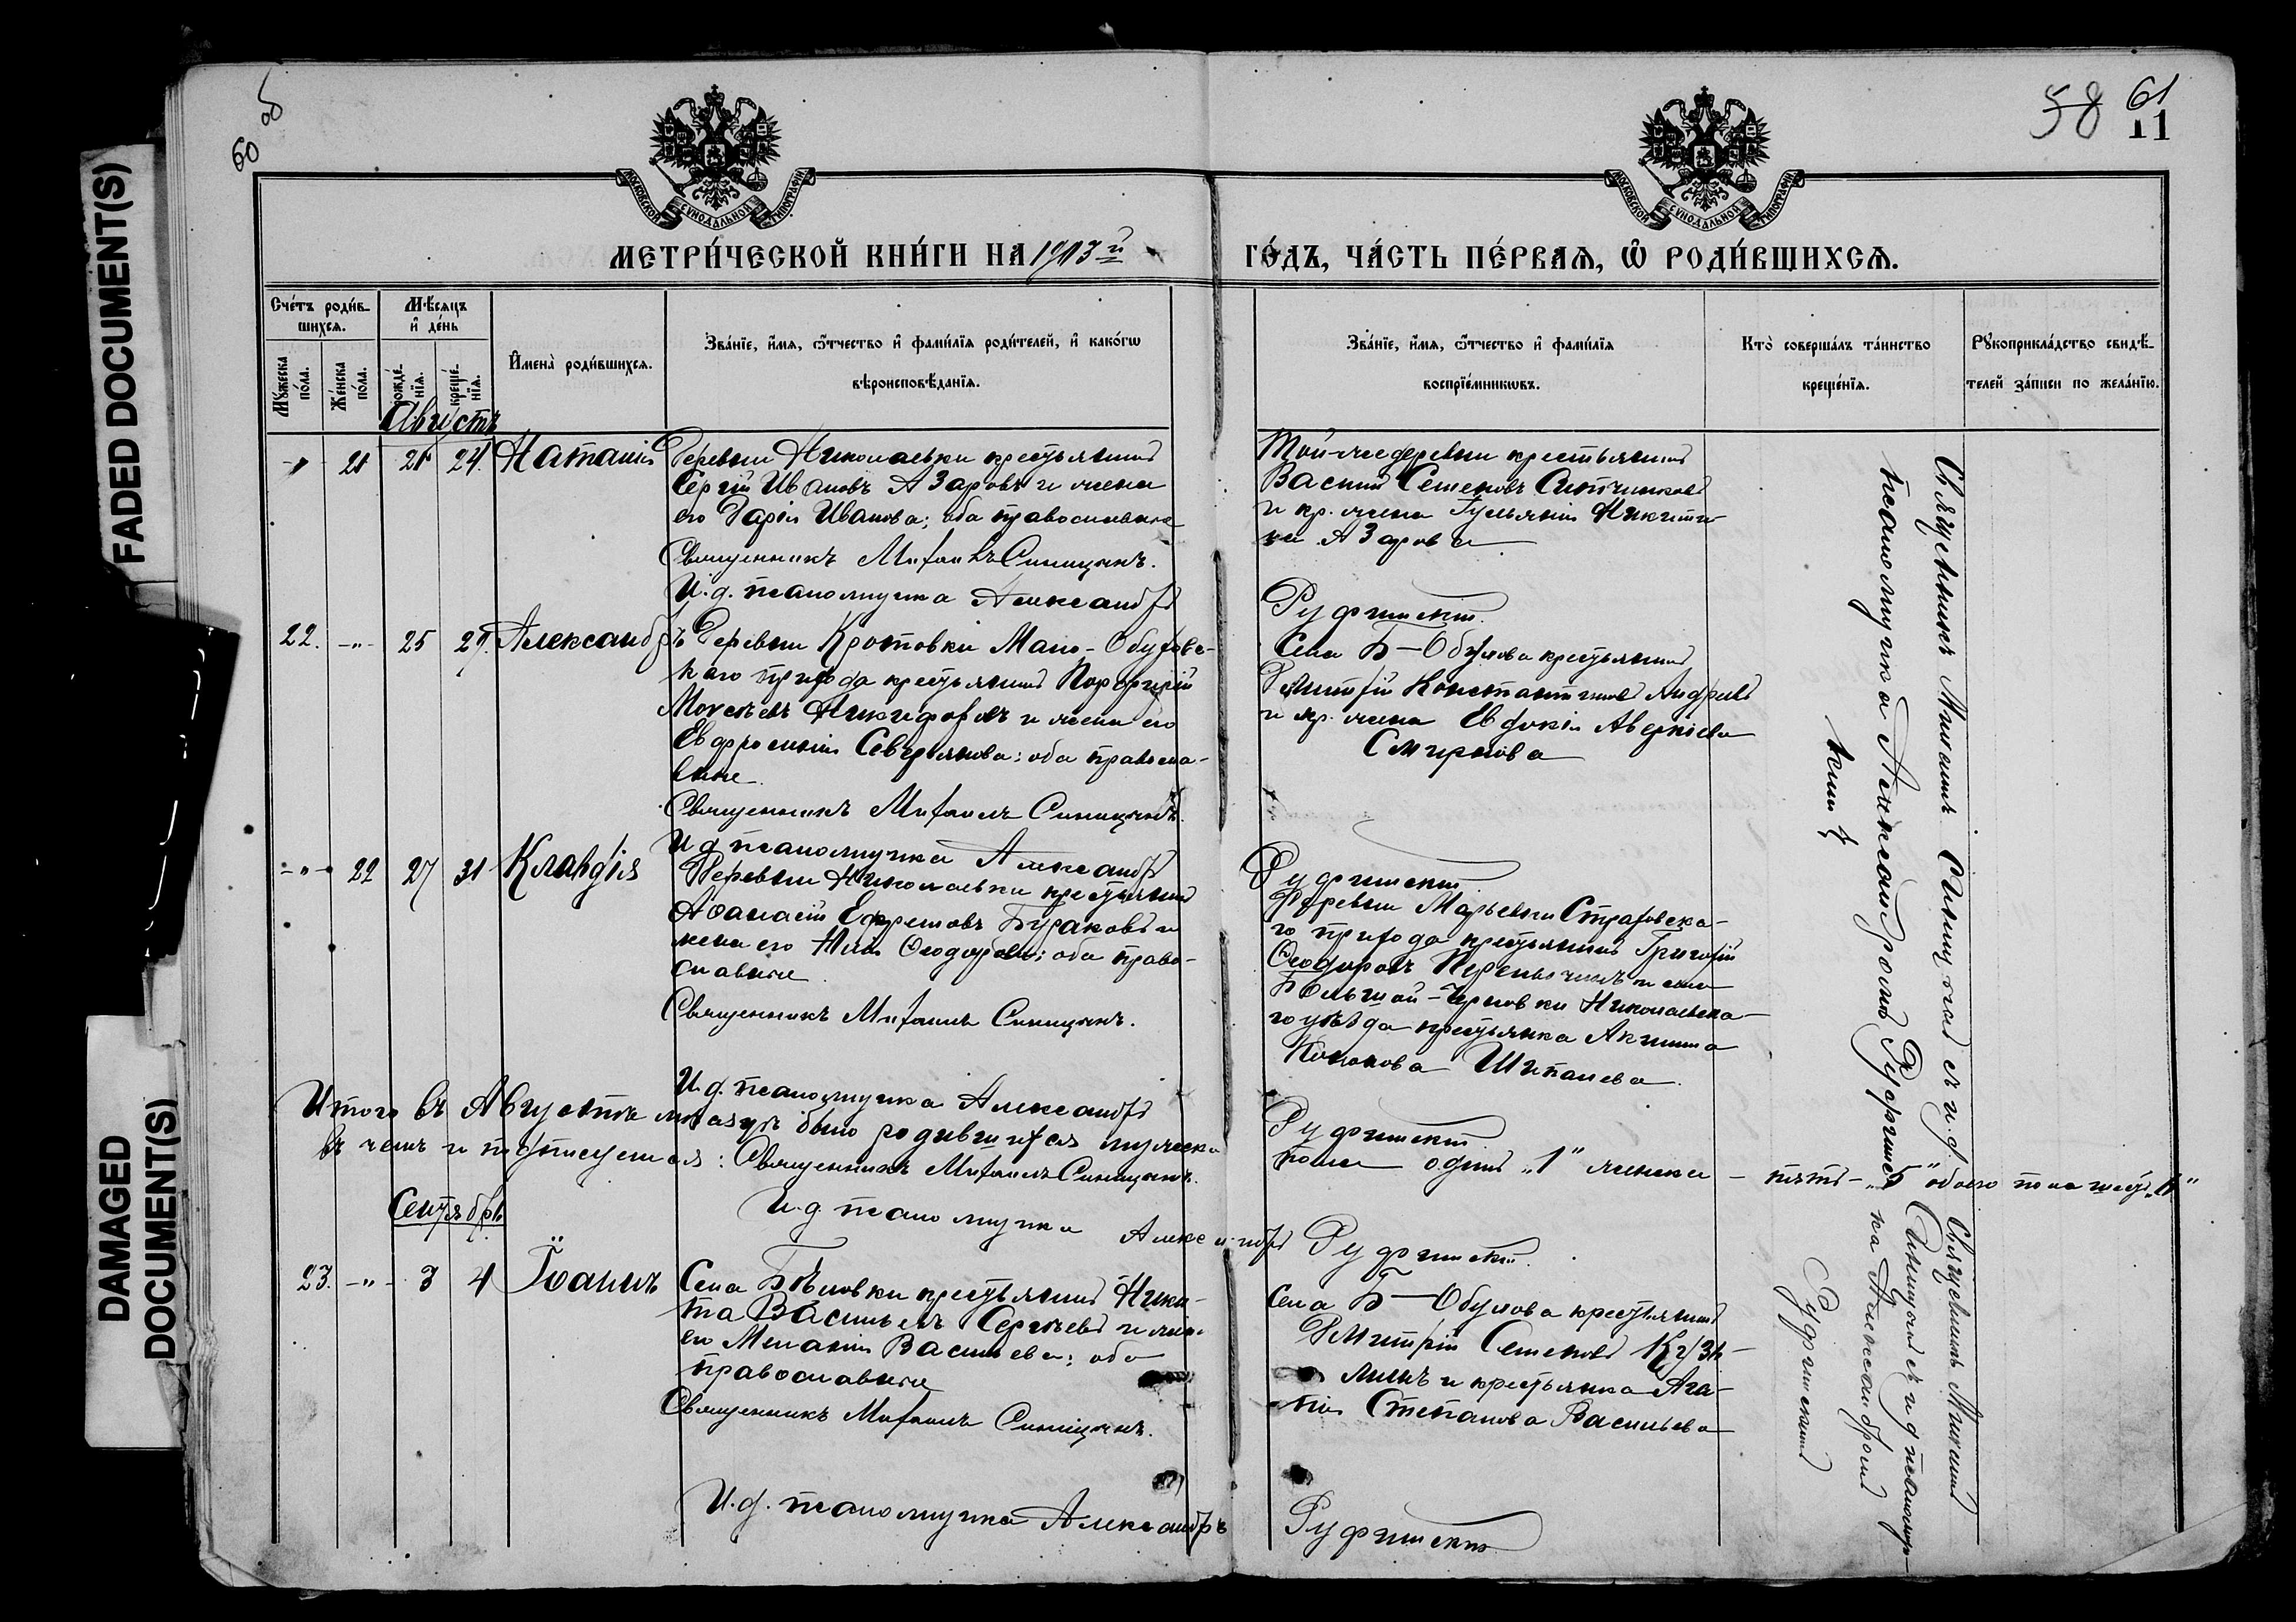 FADED DOCUMENT(S)
DAMAGED
DOCUMENT(S)
60 об
58 61
11
МОСКОВСКОЙ СѴНОДАЛЬНОЙ ТИПОГРАФІИ
МОСКОВСКОЙ СѴНОДАЛЬНОЙ ТИПОГРАФІИ
МЕТРИ́ЧЕСКОЙ КНИ́ГИ НА 1913й
ГО́ДЪ, ЧА́СТЬ ПЕ́РВАЯ, Ѡ҆ РОДИ́ВШИХСЯ.
Сче́тъ роди́в-
шихся.
Му́жеска по́ла.
Же́нска по́ла.
Мѣ́сяцъ
и҆ де́нь
рожде́нїя.
креще́нїя.
И҆мена̀ роди́вшихся.
Зва́нїе, и҆́мя, ѻ҆́тчество и҆ фами́лїя роди́телей, и҆ како́гѡ
вѣроисповѣ́данїя.
Зва́нїе, и҆́мя, ѻ҆́тчество и҆ фами́лїя
воспрїе́мникѡвъ.
Кто̀ соверша́лъ та́инство
креще́нїя.
Рꙋкоприкла́дство свидѣ́-
телей за́писи по жела́нїю.
Августъ
21 21 24. Наталія
Деревни Николаевки крестьянинъ
Сергій Ивановъ Азаровъ и жена
его Дарія Иванова; оба православные
Священникъ Михаилъ Синицынъ.
И. д. псаломщика Александръ
Той-же деревни крестьянинъ
Василій Семеновъ Ситчихинъ
и кр. жена Гульянія Никити-
на Азарова
Руфимскій.
22. -"- 25 29. Александръ
Деревни Кротовки Мало-Обуховс-
каго прихода крестьянинъ Порфирій
Моисѣевъ Никифоровъ и жена его
Евфросинія Северьянова; оба правосла-
вные
Священникъ Михаилъ Синицынъ.
И. д. псаломщика Александръ
Села Б-Обухова крестьянинъ
Димитрій Константиновъ Андреевъ
и кр. жена Евдокія Аверкіева
Смирнова
Руфимскій
-"- 22 27 31 Клавдія
Деревни Николаевки крестьянинъ
Аѳанасій Ефремовъ Бураковъ и
жена его Нина Ѳеодорова; оба право-
славные
Священникъ Михаилъ Синицынъ.
И. д. псаломщика Александръ
Деревни Марьевки Страховска-
го прихода крестьянинъ Григорій
Ѳеодоровъ и села
Большой-Черновки Николаевска-
го уѣзда крестьянка Акилина
Кононова Шипалева.
Руфимскій
Итого въ Августѣ мѣсяцѣ было родившихся мужеска
пола одинъ „1" женска - пять - „5" обоего пола шесть „6"
въ чемъ и подписуемся: Священникъ Михаилъ Синицынъ.
И. д. псаломщика Александръ Руфимскій.
Сентябрь
23. -"- 3 4 Іоаннъ
Села Бѣловки крестьянинъ Ники-
та Васильевъ Сергѣевъ и жена
его Меланія Васильева; оба
православные
Священникъ Михаилъ Синицынъ.
И. д. псаломщика Александръ
Села Б-Обухова крестьянинъ
Димитрій Семеновъ Кузь-
минъ и крестьянка Ага-
пія Степанова Васильева
Руфимскій
Священникъ Михаилъ Синицынъ съ и. д.
псаломщика Александромъ Руфимс-
кимъ
Священникъ Михаилъ
Синицынъ съ и д псаломщи-
ка Александромъ
Руфимскимъ